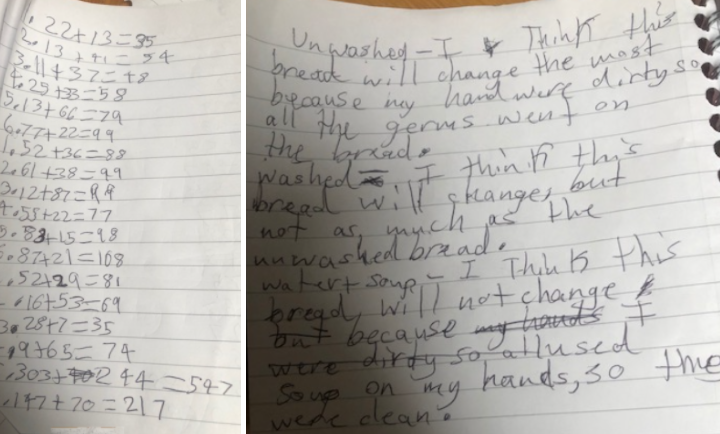 1. 22+13=35
2. 13 + 41 = 54
3. 11+37=48
4. 25+33=58
5. 13+66=79
6. 77+22=99
1. 52+36=88
2. 61+38=99
3. 12+87=99
4. 55+22=77
5. 83+15=98
6. 87+21=108
. 52+29=81
. 16+53=69
3. 28+7=35
. 9+65= 74
. 303+244=547
. 147+70=217
Unwashed - I Think this
bread will change the most
because my hand were dirty so
all the germs went on
the bread.
washed - I think this
bread will change, but
not as much as the
unwashed bread.
water+soup - I Think this
bread will not change
but because my hands I
were dirty so allused
soup on my hands, so they
were clean.